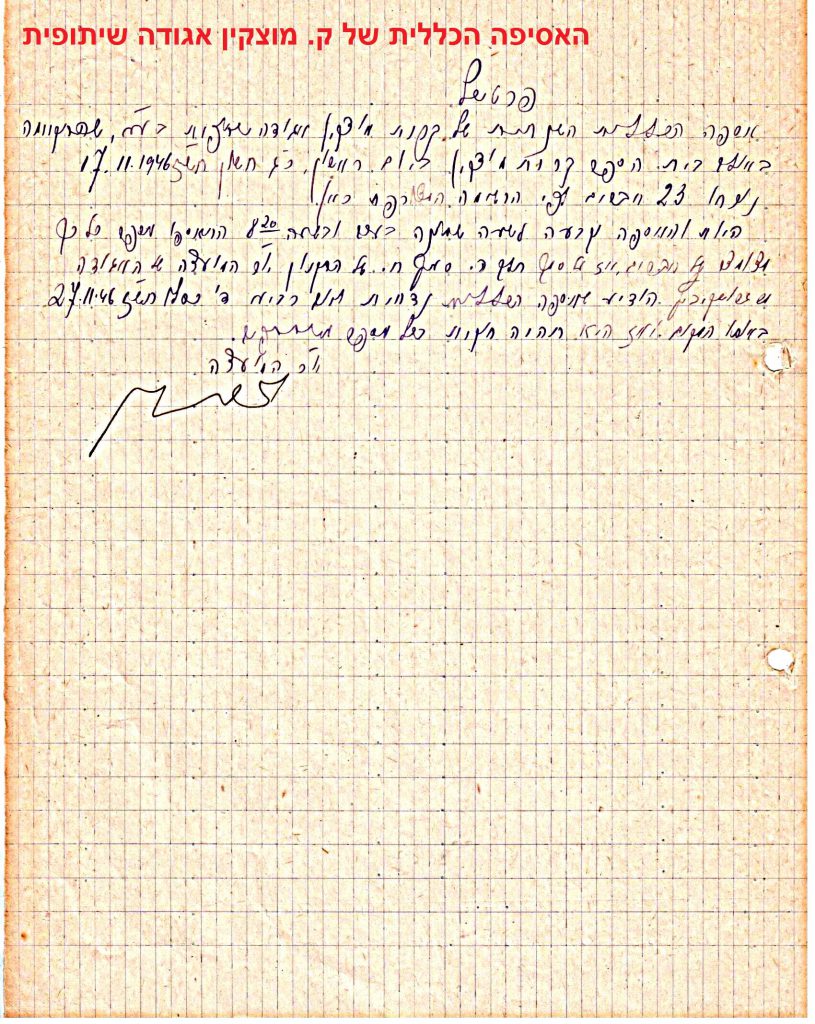 האסיפה הכללית של ק. מוצקין אגודה שיתופית
פרטיכל
אספה הכללית השנתית של קרית מוצקין אגודה שיתופית בע"מ, שהתקיימה
באולם בית הספר קרית מוצקין ביום ראשון, כ"ג חשון תש"ז 17.11.1946
נכחו 23 חברים לפי הרשימה המצורפת כאן.
היות והאסיפה נקבעה לשעה שמונה בערב ובשעה 8³⁰ התאספו מספר כל כך
מצומצם של חברים, אז על סמך סעיף ח. של התקנון יו"ר המועצה של האגודה
הודיע שאסיפה הכללית נדחית ליום רביעי ד' כסלו תש"ז 27.11.46
באותו המקום ואז היא תהיה חוקית בכל מספר
יו"ר המועצה